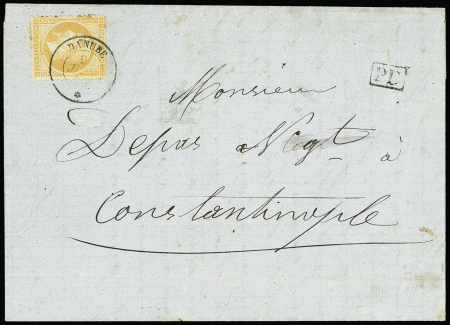 DANUBE
PD
Monsieur
Depas Negt à
Constantinople